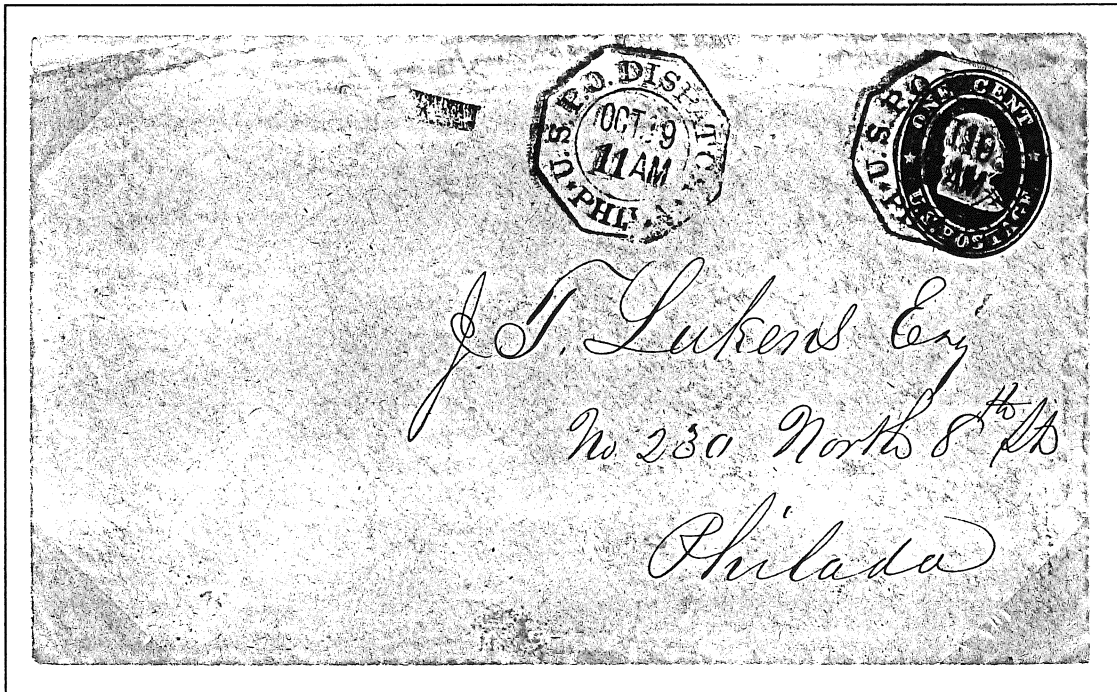 U.S. P.O. DISPATCH
OCT. 19
11 AM
★ PHIL
U.S. P.O.
ONE CENT
U.S. POSTAGE
J. T. Lukens Esq
No. 230 North 8th St
Philada